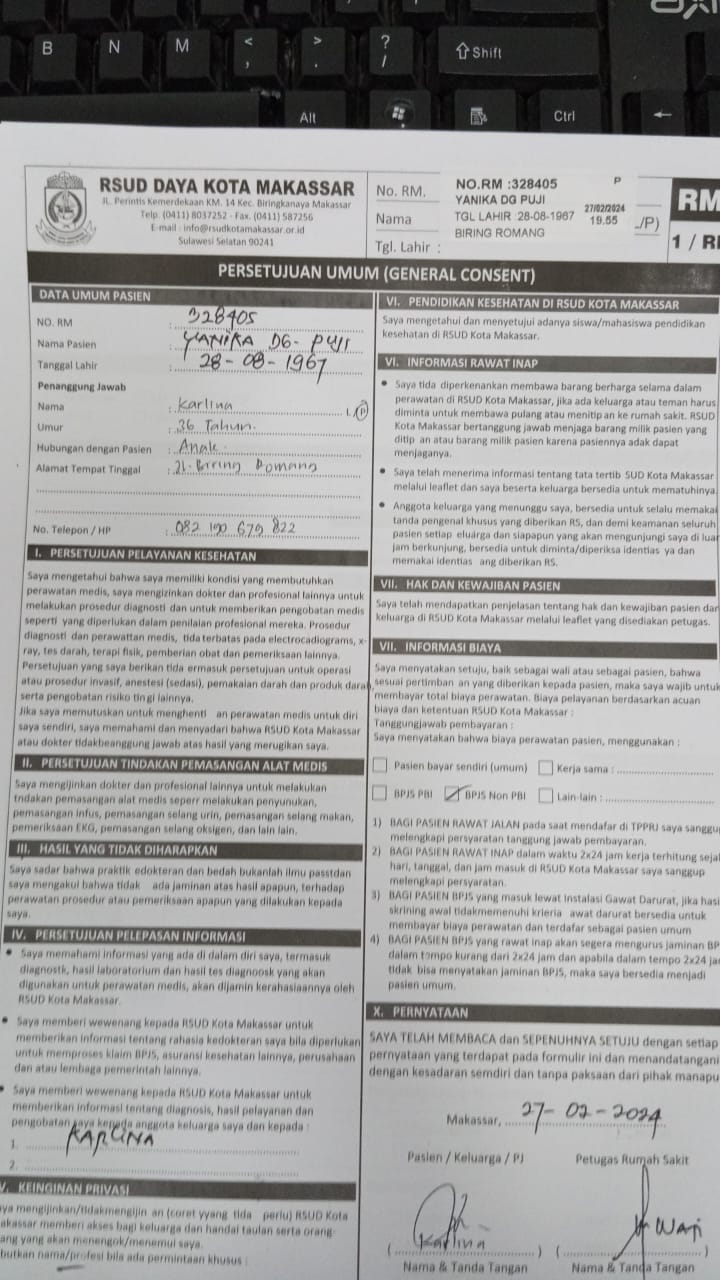 B N M < , > . ? / ⇧Shift
Alt Ctrl ←
RSUD DAYA KOTA MAKASSAR
JL. Perintis Kemerdekaan KM. 14 Kec. Biringkanaya Makassar
Telp. (0411) 8037252 - Fax. (0411) 587256
E-mail : info@rsudkotamakassar.or.id
Sulawesi Selatan 90241
No. RM.
Nama
Tgl. Lahir :
NO.RM :328405 P
YANIKA DG PUJI
TGL LAHIR :28-08-1967
BIRING ROMANG
27/02/2024
19.55
/P)
RM
1 / RI
PERSETUJUAN UMUM (GENERAL CONSENT)
DATA UMUM PASIEN
NO. RM : 328405
Nama Pasien : YANIKA DG- PUJI
Tanggal Lahir : 28-08-1967
Penanggung Jawab
Nama : Karlina L/P
Umur : 36 Tahun.
Hubungan dengan Pasien : Anak.
Alamat Tempat Tinggal : Jl. Biring Romang
No. Telepon / HP : 082 190 679 822
I. PERSETUJUAN PELAYANAN KESEHATAN
Saya mengetahui bahwa saya memiliki kondisi yang membutuhkan
perawatan medis, saya mengizinkan dokter dan profesional lainnya untuk
melakukan prosedur diagnosti dan untuk memberikan pengobatan medis
seperti yang diperlukan dalam penilaian profesional mereka. Prosedur
diagnosti dan perawattan medis, tida terbatas pada electrocadiograms, x-
ray, tes darah, terapi fisik, pemberian obat dan pemeriksaan lainnya.
Persetujuan yang saya berikan tida ermasuk persetujuan untuk operasi
atau prosedur invasif, anestesi (sedasi), pemakaian darah dan produk darah,
serta pengobatan risiko tin gi lainnya.
Jika saya memutuskan untuk menghenti an perawatan medis untuk diri
saya sendiri, saya memahami dan menyadari bahwa RSUD Kota Makassar
atau dokter tidakbeanggung jawab atas hasil yang merugikan saya.
II. PERSETUJUAN TINDAKAN PEMASANGAN ALAT MEDIS
Saya mengijinkan dokter dan profesional lainnya untuk melakukan
tndakan pemasangan alat medis seperr melakukan penyunukan,
pemasangan infus, pemasangan selang urin, pemasangan selang makan,
pemeriksaan EKG, pemasangan selang oksigen, dan lain lain.
III. HASIL YANG TIDAK DIHARAPKAN
Saya sadar bahwa praktik edokteran dan bedah bukanlah ilmu passtdan
saya mengakui bahwa tidak ada jaminan atas hasil apapun, terhadap
perawatan prosedur atau pemeriksaan apapun yang dilakukan kepada
saya.
IV. PERSETUJUAN PELEPASAN INFORMASI
• Saya memahami informasi yang ada di dalam diri saya, termasuk
diagnostk, hasil laboratorium dan hasil tes diagnoosk yang akan
digunakan untuk perawatan medis, akan dijamin kerahasiaannya oleh
RSUD Kota Makassar.
• Saya memberi wewenang kepada RSUD Kota Makassar untuk
memberikan informasi tentang rahasia kedokteran saya bila diperlukan
untuk memproses klaim BPJS, asuransi kesehatan lainnya, perusahaan
dan atau lembaga pemerintah lainnya.
• Saya memberi wewenang kepada RSUD Kota Makassar untuk
memberikan informasi tentang diagnosis, hasil pelayanan dan
pengobatan saya kepada anggota keluarga saya dan kepada :
1. KARLINA
2.
V. KEINGINAN PRIVASI
ya mengijinkan/tidakmengijin an (coret yyang tida perlu) RSUD Kota
akassar memberi akses bagi keluarga dan handai taulan serta orang
ang yang akan menengok/menemui saya.
butkan nama/profesi bila ada permintaan khusus :
VI. PENDIDIKAN KESEHATAN DI RSUD KOTA MAKASSAR
Saya mengetahui dan menyetujui adanya siswa/mahasiswa pendidikan
kesehatan di RSUD Kota Makassar.
VI. INFORMASI RAWAT INAP
• Saya tida diperkenankan membawa barang berharga selama dalam
perawatan di RSUD Kota Makassar, jika ada keluarga atau teman harus
diminta untuk membawa pulang atau menitip an ke rumah sakit. RSUD
Kota Makassar bertanggung jawab menjaga barang milik pasien yang
ditip an atau barang milik pasien karena pasiennya adak dapat
menjaganya.
• Saya telah menerima informasi tentang tata tertib SUD Kota Makassar
melalui leaflet dan saya beserta keluarga bersedia untuk mematuhinya.
• Anggota keluarga yang menunggu saya, bersedia untuk selalu memakai
tanda pengenal khusus yang diberikan RS, dan demi keamanan seluruh
pasien setiap eluarga dan siapapun yang akan mengunjungi saya di luar
jam berkunjung, bersedia untuk diminta/diperiksa identias ya dan
memakai identias ang diberikan RS.
VII. HAK DAN KEWAJIBAN PASIEN
Saya telah mendapatkan penjelasan tentang hak dan kewajiban pasien dan
keluarga di RSUD Kota Makassar melalui leaflet yang disediakan petugas.
VII. INFORMASI BIAYA
Saya menyatakan setuju, baik sebagai wali atau sebagai pasien, bahwa
sesuai pertimban an yang diberikan kepada pasien, maka saya wajib untuk
membayar total biaya perawatan. Biaya pelayanan berdasarkan acuan
biaya dan ketentuan RSUD Kota Makassar :
Tanggungjawab pembayaran :
Saya menyatakan bahwa biaya perawatan pasien, menggunakan :
Pasien bayar sendiri (umum) Kerja sama :
BPJS PBI BPJS Non PBI Lain-lain :
1) BAGI PASIEN RAWAT JALAN pada saat mendafar di TPPRJ saya sanggup
melengkapi persyaratan tanggung jawab pembayaran.
2) BAGI PASIEN RAWAT INAP dalam waktu 2x24 jam kerja terhitung sejak
hari, tanggal, dan jam masuk di RSUD Kota Makassar saya sanggup
melengkapi persyaratan.
3) BAGI PASIEN BPJS yang masuk lewat Instalasi Gawat Darurat, jika hasi
skrining awal tidakmemenuhi krleria awat darurat bersedia untuk
membayar biaya perawatan dan terdafar sebagai pasien umum
4) BAGI PASIEN BPJS yang rawat inap akan segera mengurus jaminan BP
dalam tempo kurang dari 2x24 jam dan apabila dalam tempo 2x24 ja
tidak bisa menyatakan jaminan BPJS, maka saya bersedia menjadi
pasien umum.
X. PERNYATAAN
SAYA TELAH MEMBACA dan SEPENUHNYA SETUJU dengan setiap
pernyataan yang terdapat pada formulir ini dan menandatangani
dengan kesadaran semdiri dan tanpa paksaan dari pihak manapu
Makassar, 27-02-2024
Pasien / Keluarga / PJ Petugas Rumah Sakit
( Karlina ) ( )
Nama & Tanda Tangan Nama & Tanda Tangan